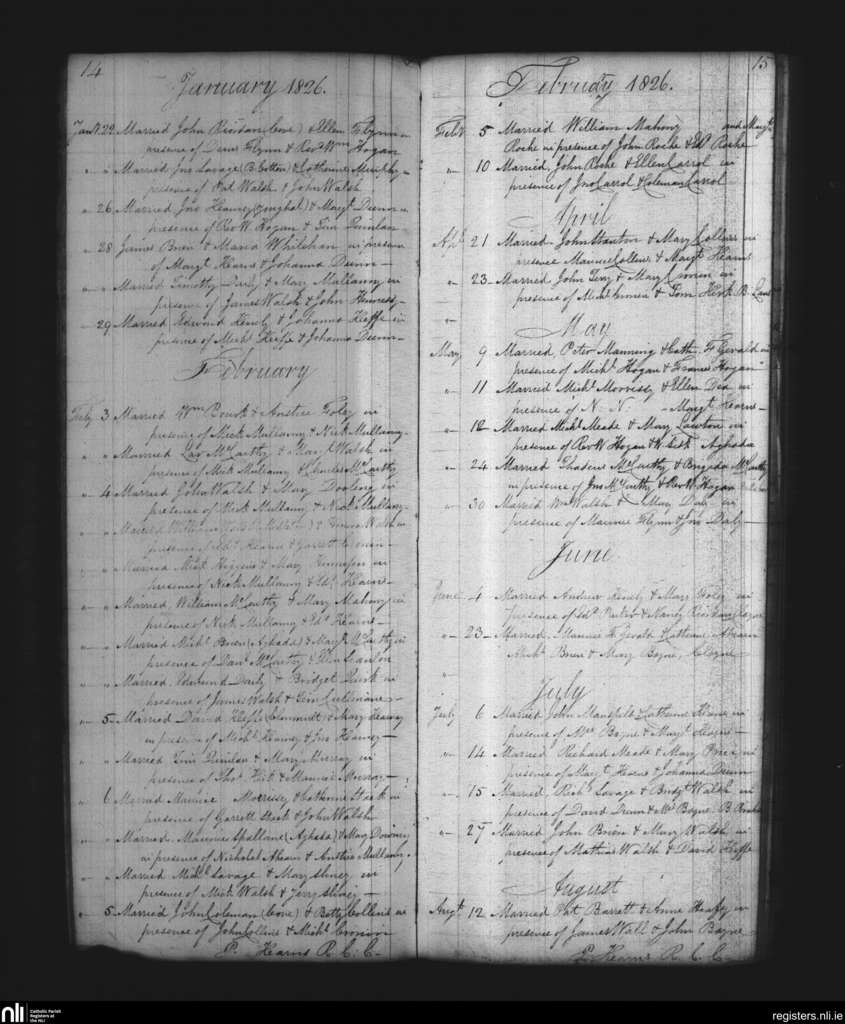 14
January 1826.
Jany. 22 Married John Riordan (Cove) & Ellen Flynn in
presence of Denis Flynn & Revd. Wm Hogan
" " Married Jno Savage (B. Cotton) & Catherine Murphy
presence of Pad Walsh & John Walsh
" 26 Married Jno Heaney (Youghal) & Margt. Dunn in
presence of Rev W. Hogan & Tim Quinlan
" 28 James Brien & Maria Whilehan in presence
of Margt Hearns & Johanna Dunn
" " Married Timothy Daily & Mary Mullamy in
presence of James Walsh & John Hennessy
" 29 Married Edward Kenely & Johanna Keeffe in
presence of Michl Keeffe & Johanna Dunn
February
Feby 3 Married Wm Bourk & Anstice Foley in
presence of Mick Mullamy & Nick Mullamy
" " Married McCarthy & Margt Walsh in
presence of Mick Mullamy & Charles McCarthy
" 4 Married John Walsh & Mary Dooling in
presence of Nick Mullamy & Nick Mullamy
" " Married William & Walsh in
presence of Edd Hearns & Garrett Cronin
" " Married Mick Higgins & Mary in
presence of Nick Mullamy & Edd. Hearns
" " Married William McCarthy & Mary Mahony in
presence of Nick Mullamy & Edd Hearns
" " Married Michl Brien (Aghada) & Margt McCarthy in
presence of Danl McCarthy & Ellen Scanlon
" " Married Edmund Daily & Bridget Quirk in
presence of James Walsh & Tim Cullinane
" 5 Married David Keeffe & Mary Heaney
in presence of Michl Heaney & Jno Heaney
" " Married Tim Quinlan & Mary Murray in
presence of Thos. & Maurice Murray
" 6 Married Maurice Morrissy & Catherine Steek in
presence of Garrett Steek & John Walsh
" " Married Maurice Spillane (Aghada) & Mary Downey
in presence of Nicholas Ahearn & Anstice Mullamy
" " Married Michl Savage & Mary in
presence of Mick Walsh & Jerry
" 5 Married John Coleman (Cove) & Betty Collins in
presence of John Collins & Michl Cronin
P. Hearns R. C. C.
15
February 1826.
Feby 5 Married William Mahony and Margt.
Roche in presence of John Roche & Edd Roche
" 10 Married John Roche & Ellen Carrol in
presence of Jno Carrol & Coleman Carrol
April
Apl. 21 Married John Stanton & Mary Collins in
presence Maurice Collins & Margt Hearns
" 23 Married John Terry & Mary Cronin in
presence of Michl Cronin & Tom B.
"
May
May 9 Married Peter Manning & Cathe. FGerald in
presence of Michl. Hogan & Frances Hogan
" 11 Married Michl. Morrissy & Ellen Dea in
presence of N. N. Margt. Hearns
" 12 Married Michl Meade & Mary Lawton in
presence of Rev W Hogan & Aghada
" 24 Married Thadeus McCarthy & Brigida McCarthy
in presence of Jno McCarthy & Rev W. Hogan
" 30 Married Wm Walsh & Mary Daly in
presence of Maurice Flynn & Jno Daly
June
June 4 Married Andrew Kenely & Mary Foley in
presence of Edd & Nancy Riordan Cloyne
" 23 Married Maurice FtGerald Catherine Ahearn
Michl Brien & Mary Bagne, Cloyne
"
July
July 6 Married John Mansfield & Catherine in
presence of Mrs Bagne & Margt
" 14 Married Richard Meade & Mary in
presence of Margt Hearns & Johanna Dunn
" 15 Married Richd Savage & Bridgt Walsh in
presence of David Dunn & Mrs Bagne
" 27 Married John Brien & Mary Walsh in
presence of Mathias Walsh & David Keeffe
August
Augt. 12 Married Pat Barrett & Anne Heafy in
presence of James Wall & John Bagne
P. Hearns R. C. C.
nli
Catholic Parish
Registers at
the NLI
registers.nli.ie